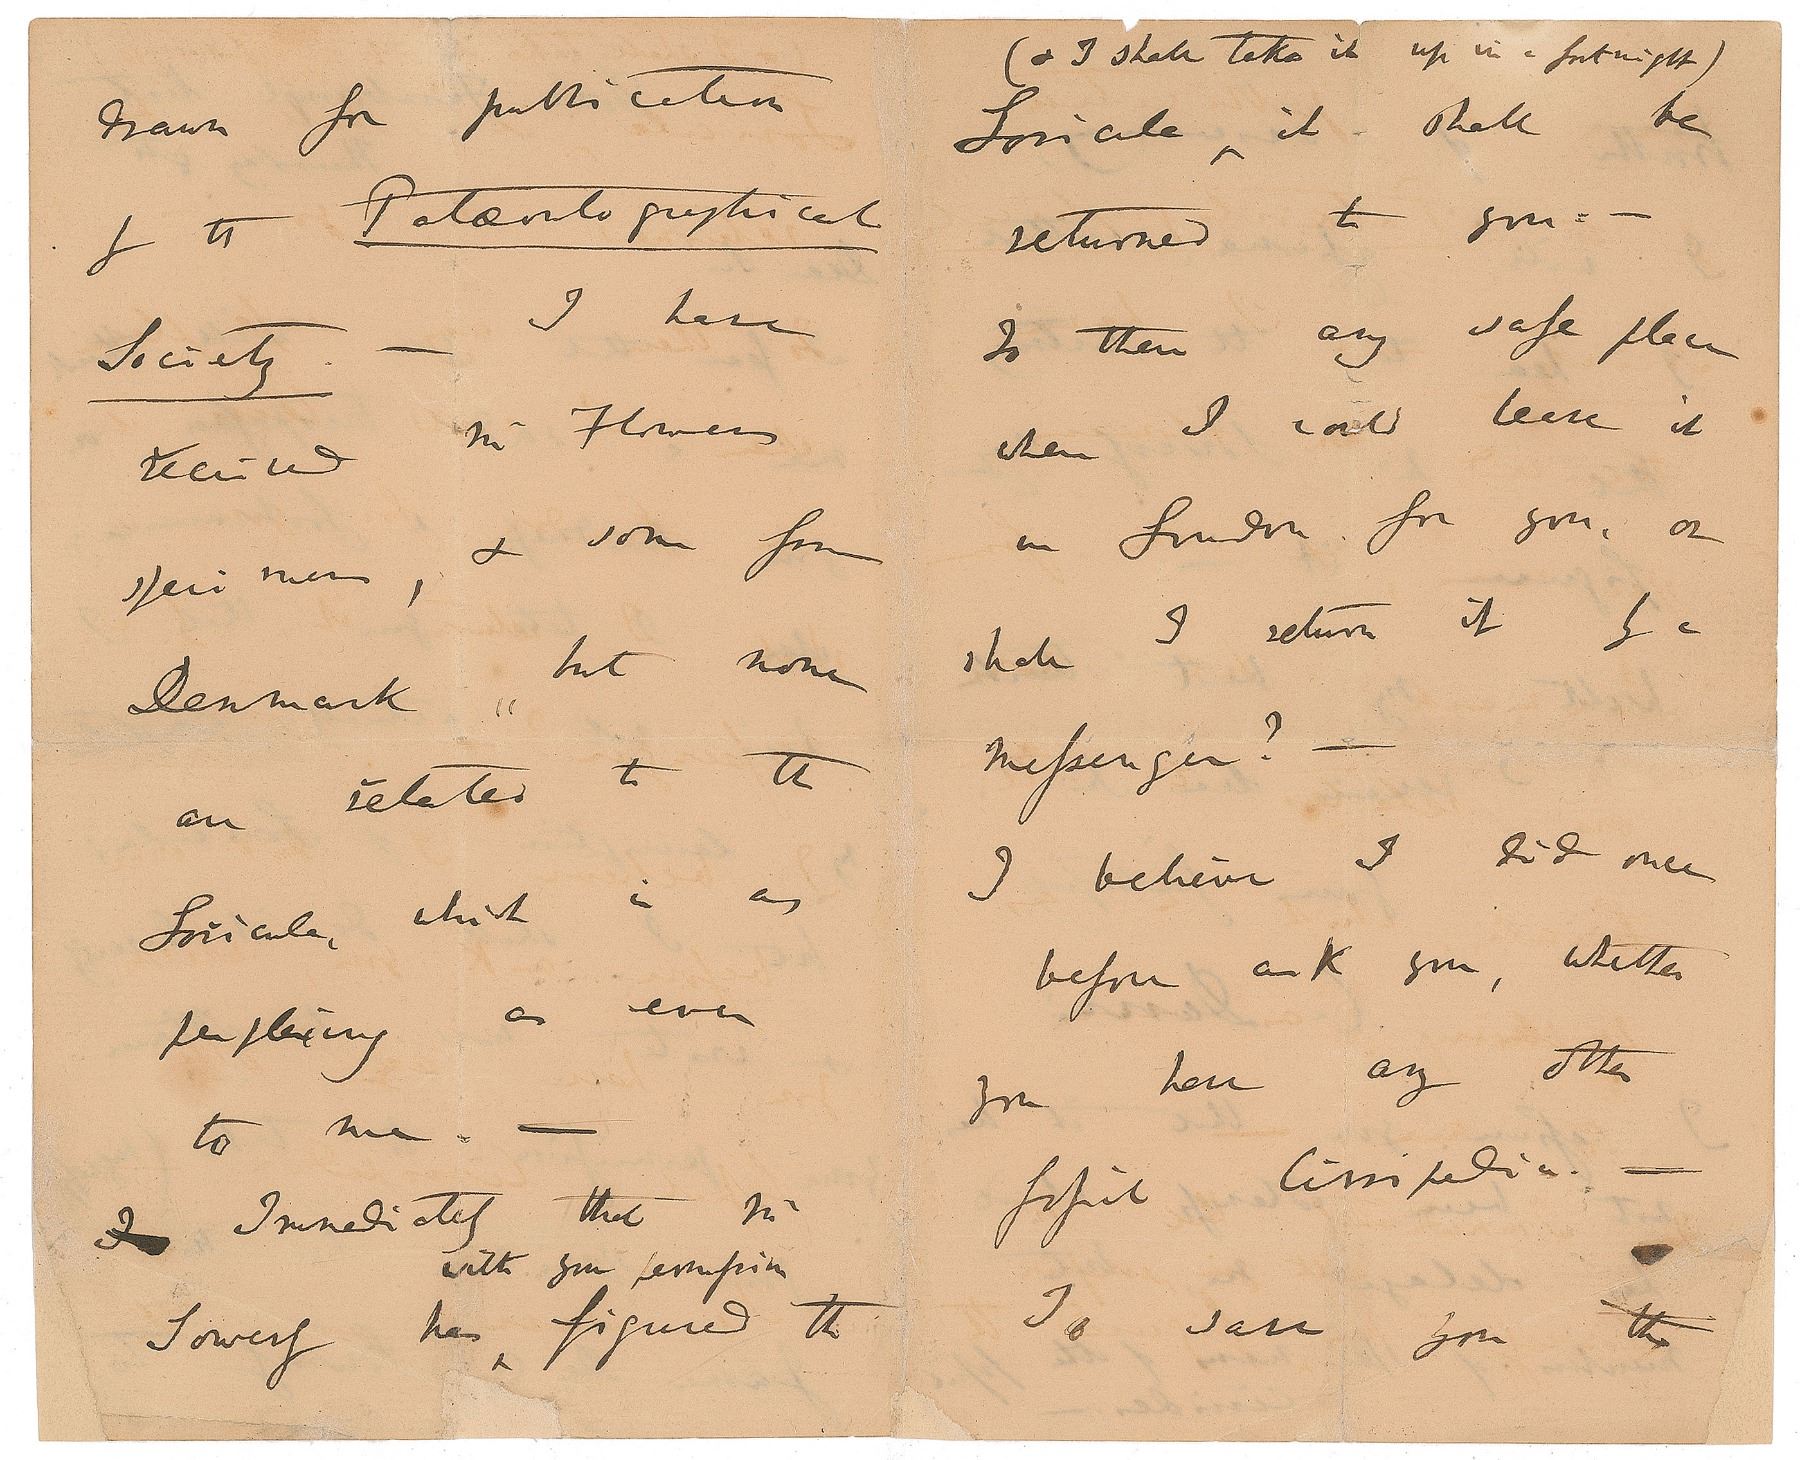 drawn for publication
of the Palæontographical
Society. — I have
received Mr Flowers
specimens, & some from
Denmark, but none
are related to the
Loricula, which is as
perplexing as ever
to me. —
I Immediately that Mr
with your permission
Sowerby has ^ figured the
(& I shall take it up in a fortnight)
Loricula ^ it shall be
returned to you: —
Is there any safe place
where I could leave it
in London for you, or
shall I return it by a
messenger? —
I believe I did once
before ask you, whether
you have any other
fossil Cirripedia. —
To save you the